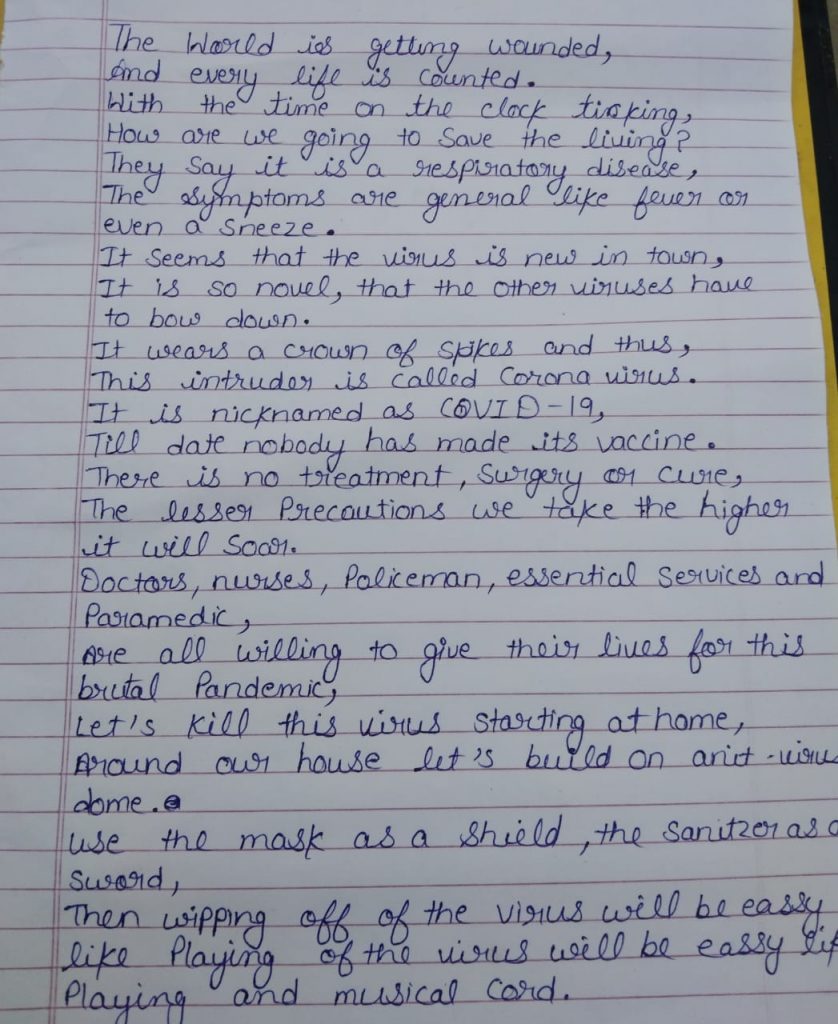 The World is getting wounded,
And every life is counted.
With the time on the clock ticking,
How are we going to Save the living?
They Say it is a respiratory disease,
The symptoms are general like fever or
even a Sneeze.
It Seems that the virus is new in town,
It is so novel, that the other viruses have
to bow down.
It wears a crown of spikes and thus,
This intruder is called Corona virus.
It is nicknamed as COVID-19,
Till date nobody has made its vaccine.
There is no treatment, Surgery or cure,
The lesser Precautions we take the higher
it will Soar.
Doctors, nurses, Policeman, essential Services and
Paramedic,
Are all willing to give their lives for this
brutal Pandemic,
Let's kill this virus starting at home,
Around our house let's build on anit-viru
dome.
use the mask as a Shield, the Sanitzer as a
Sword,
Then wipping off of the virus will be eassy
like Playing of the virus will be eassy lik
Playing and musical Cord.